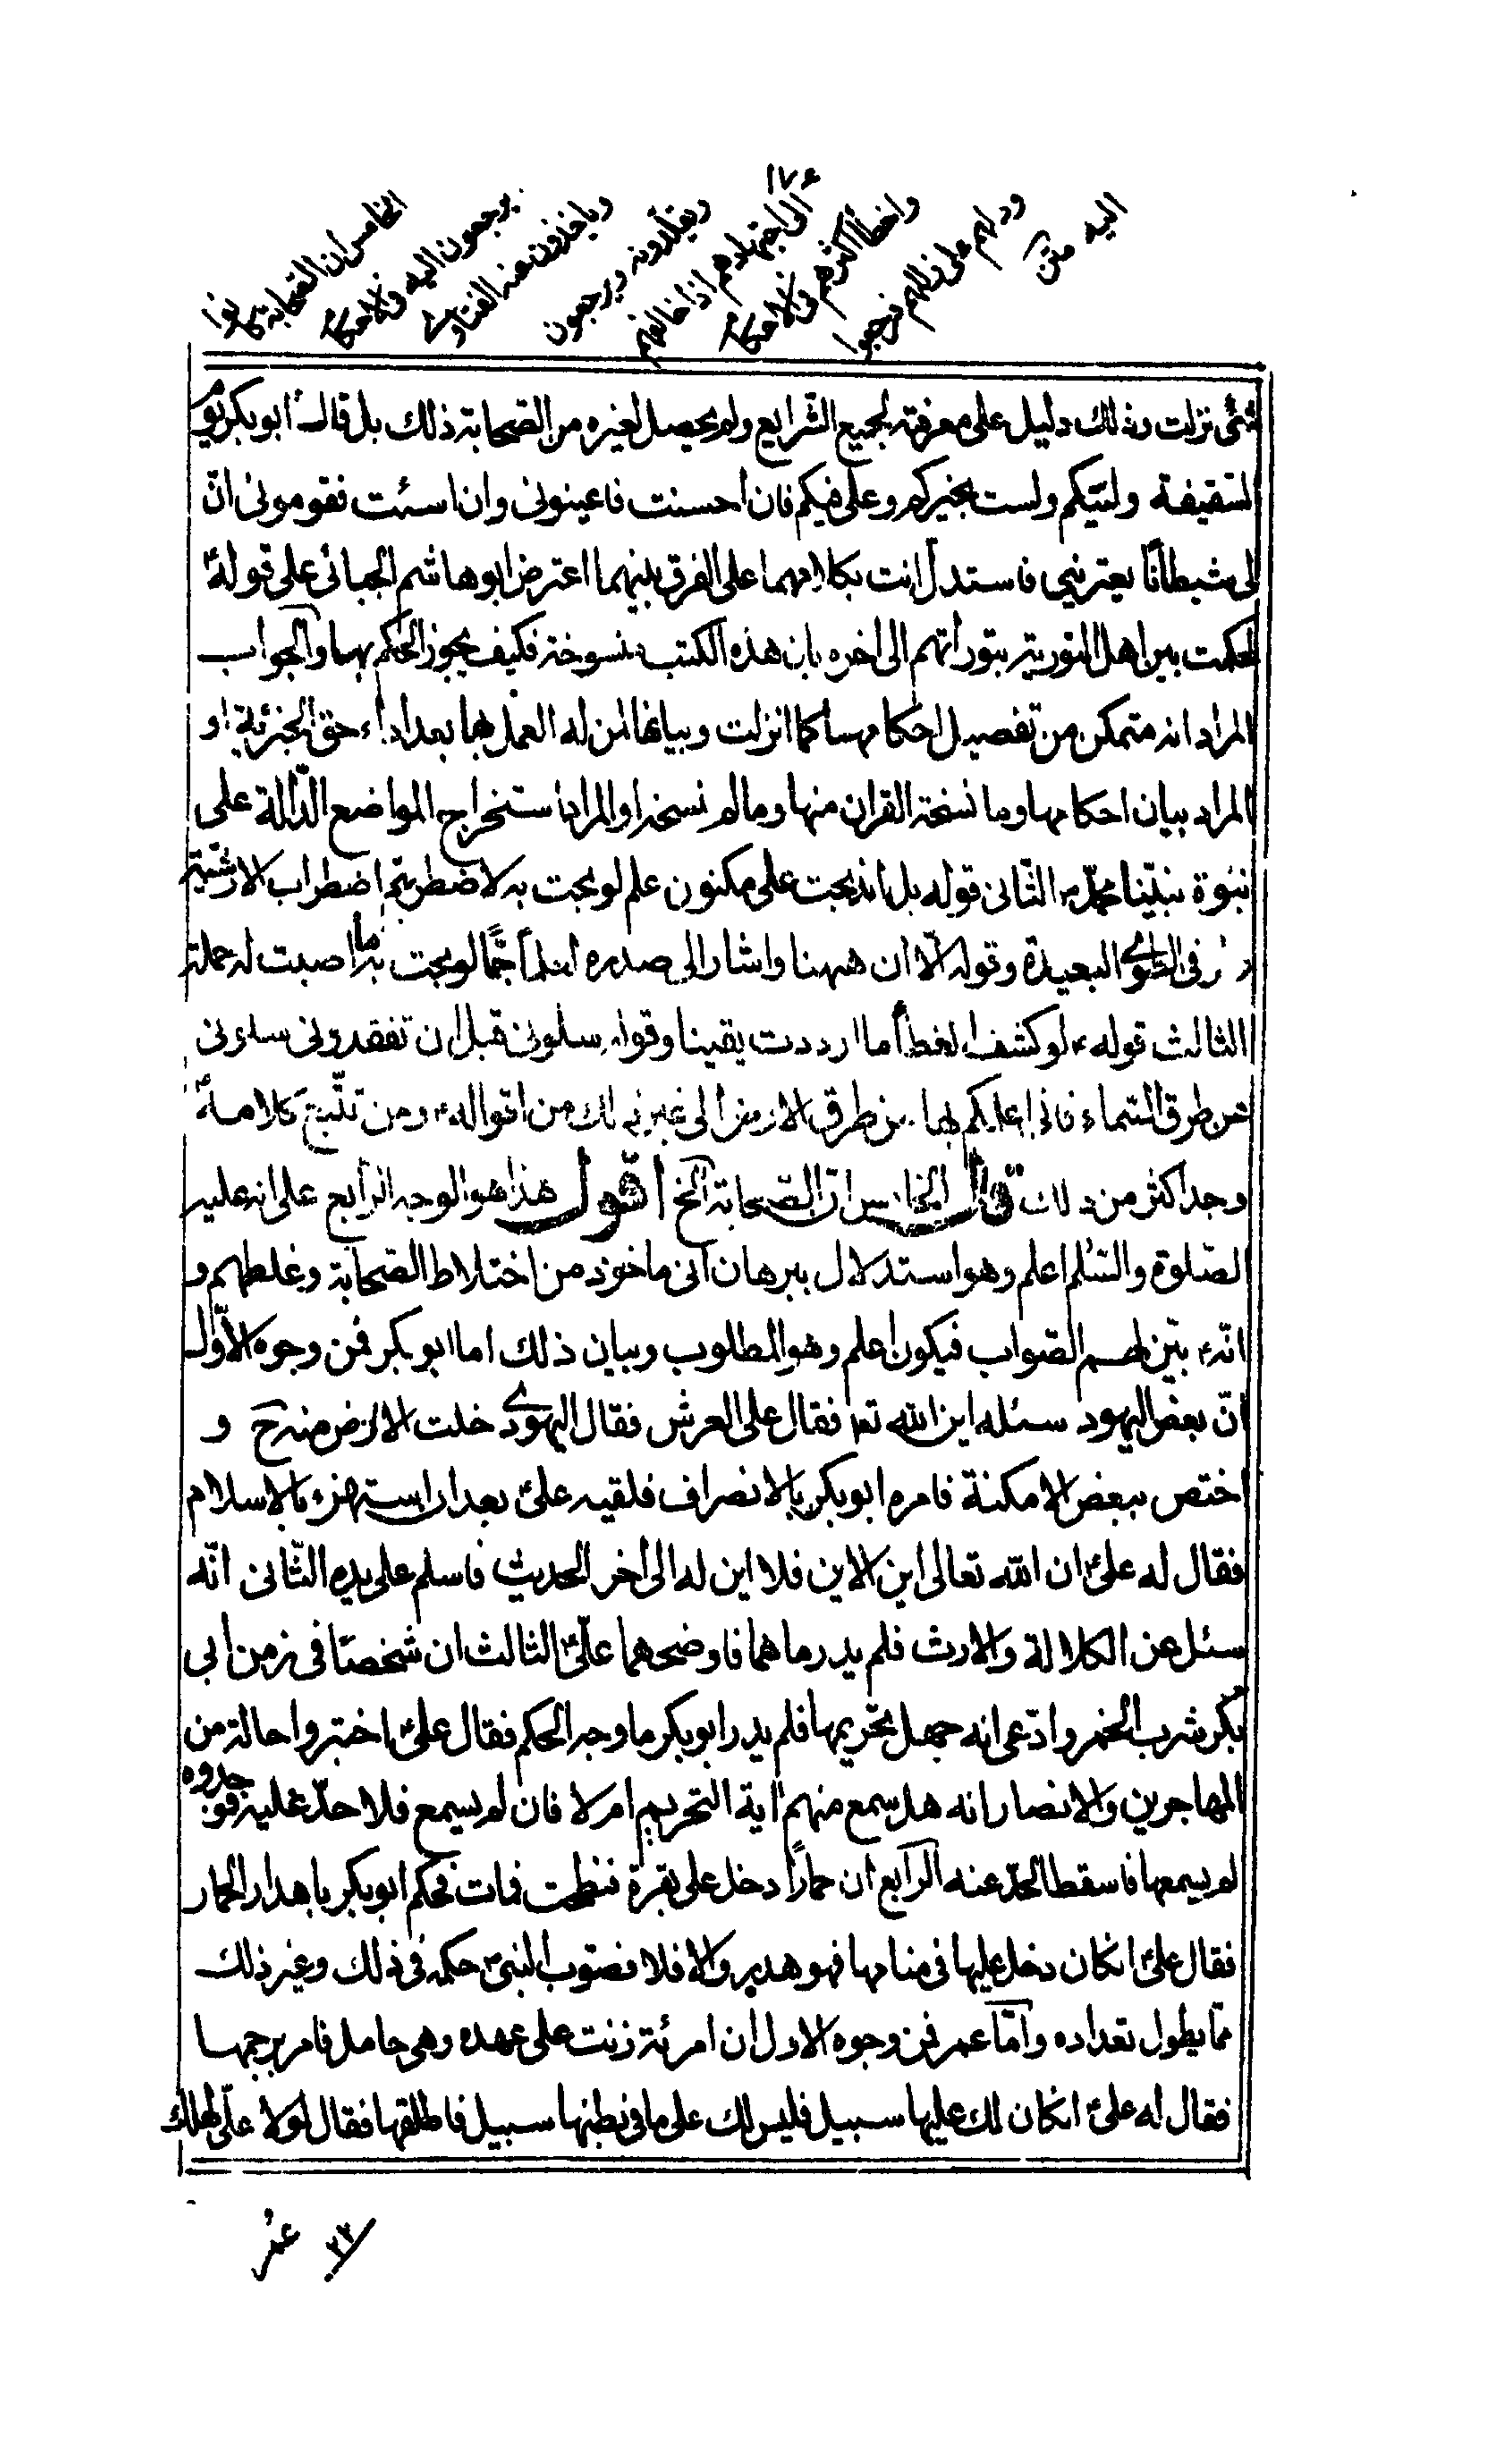 ١٧٤
الخامس ان الصحابة كانوا
يرجعون اليه فى الاحكام
وياخذون عنه الفتاوى
ويقلدونه ويرجعون
الى اجتهادهم اذا خالفهم
واخطأ اكثرهم فى الاحكام
ودلهم على زللهم فرجعوا
اليه متن
شئ نزلت وذلك دليل على معرفته بجميع الشرايع ولم يحصل لغيره من الصحابة ذلك بل قال ابوبكر يوم
السقيفة وليتكم ولست بخيركم وعلى فيكم فان احسنت فاعينونى وان اسئت فقومونى انّ
لى شيطانًا يعترينى فاستدل انت بكلامهما على الفرق بينهما اعترض ابوهاشم الجبائى على قوله
لحكمت بين اهل التورية بتوراتهم الى اخره بان هذه الكتب منسوخة فكيف يجوز الحكم بها والجواب
المراد انه متمكن من تفصيل احكامها كما انزلت وبيانها لمن له العمل بها بعد اداء حق الجزية او
المراد بيان احكامها وما نسخه القران منها وما لم نسخه او المراد استخراج المواضع الدّالة على
نبوة نبيّنا محمّد الثّانى قوله بل اندمجت على مكنون علم لو بحت به لاضطربتم اضطراب الارشية
فى الطوى البعيدة وقوله الا ان ههنا واشار الى صدره لعلمًا جمًّا لو بحت به ما اصبت له حملة
الثالث قوله لو كشف الغطأ ما ازددت يقينا وقوله سلونى قبل ان تفقدونى سلونى
عن طرق السّماء فانى اعلم بها من طرق الارض الى غير ذلك من اقواله ومن تتبّع كلامه
وجد اكثر من ذلك قال الخامس انّ الصحابة الخ اقول هذا هو الوجه الرابع على انه عليه
الصّلوة والسّلم اعلم وهو استدلال ببرهان انى ماخوذ من اختلاط الصّحابة وغلطهم و
انّه بيّن لهم الصّواب فيكون اعلم وهو المطلوب وبيان ذلك اما ابوبكر فمن وجوه الاوّل
انّ بعض اليهود سئله اين الله تع فقال على العرش فقال اليهودى خلت الارض منه ح و
اختص ببعض الامكنة فامره ابوبكر بالانصراف فلقيه علىّ بعد ان استهزء بالاسلام
فقال له علىّ ان الله تعالى اين الاين فلا اين له الى اخر الحديث فاسلم على يده الثّانى انّه
سئل عن الكلالة والارث فلم يدر ما هما فاوضحهما علىّ الثالث ان شخصًا فى زمن ابى
بكر شرب الخمر وادّعى انه جهل بتحريمها فلم يدر ابوبكر ما وجه الحكم فقال علىّ اختبروا حاله من
المهاجرين والانصار انه هل سمع منهم اية التحريم ام لا فان لم يسمع فلا حدّ عليه فوجدوه
لم يسمعها فاسقط الحدّ عنه الرابع ان حمارًا دخل على بقرة فنطحته فمات فحكم ابوبكر باهدار الحمار
فقال علىّ انكان دخل عليها فى منامها فهو هدر والا فلا فصوّب النبىّ حكمه فى ذلك وغير ذلك
مما يطول تعداده وامّا عمر فمن وجوه الاول ان امرئة زنت على عهده وهى حامل فامر برجمها
فقال له علىّ انكان لك عليها سبيل فليس لك على ما فى بطنها سبيل فاطلقها فقال لولا علىّ لهلك
عمر